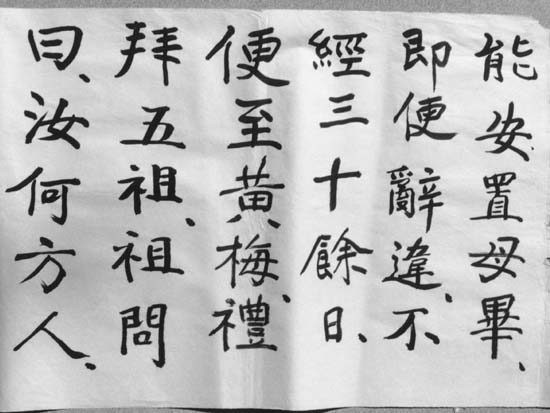 能安置母畢、
即便辭違、不
經三十餘日、
便至黃梅、禮
拜五祖、祖問
曰、汝何方人、